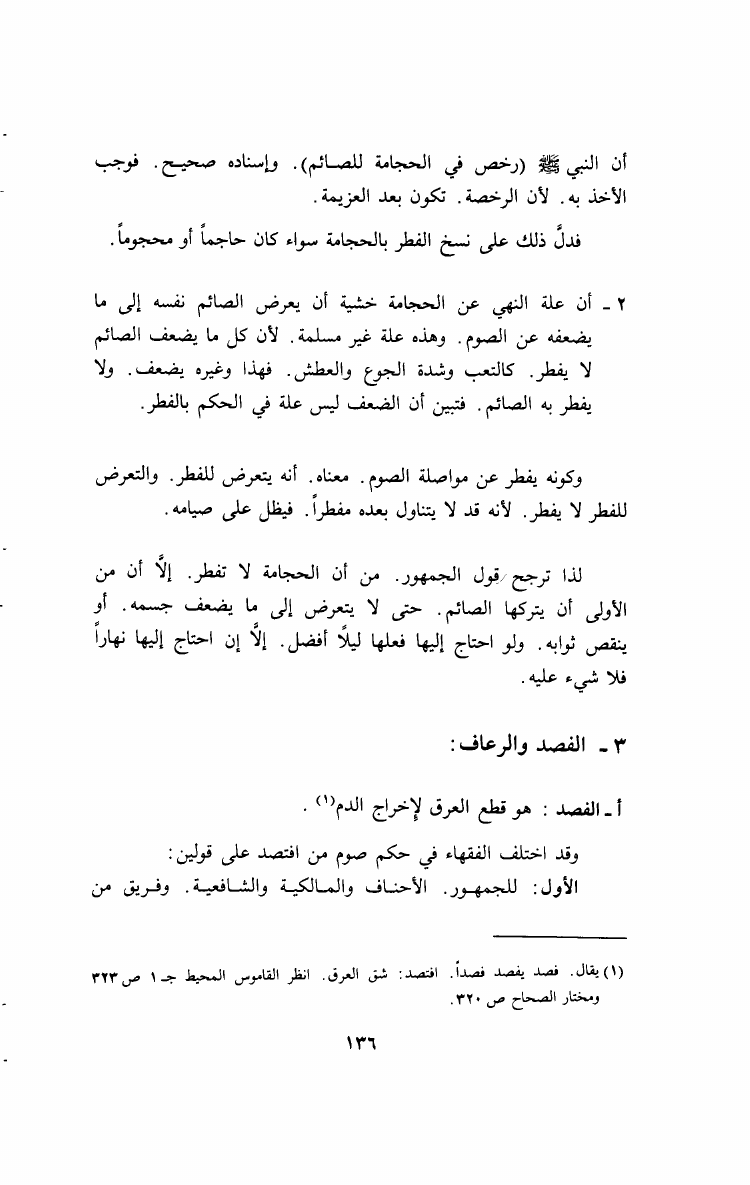 أن النبي ﷺ (رخص في الحجامة للصائم). وإسناده صحيح. فوجب
الأخذ به. لأن الرخصة. تكون بعد العزيمة.
فدلَّ ذلك على نسخ الفطر بالحجامة سواء كان حاجماً أو محجوماً.
٢ ـ أن علة النهي عن الحجامة خشية أن يعرض الصائم نفسه إلى ما
يضعفه عن الصوم. وهذه علة غير مسلمة. لأن كل ما يضعف الصائم
لا يفطر. كالتعب وشدة الجوع والعطش. فهذا وغيره يضعف. ولا
يفطر به الصائم. فتبين أن الضعف ليس علة في الحكم بالفطر.
وكونه يفطر عن مواصلة الصوم. معناه. أنه يتعرض للفطر. والتعرض
للفطر لا يفطر. لأنه قد لا يتناول بعده مفطراً. فيظل على صيامه.
لذا ترجح قول الجمهور. من أن الحجامة لا تفطر. إلَّا أن من
الأولى أن يتركها الصائم. حتى لا يتعرض إلى ما يضعف جسمه. أو
ينقص ثوابه. ولو احتاج إليها فعلها ليلًا أفضل. إلَّا إن احتاج إليها نهاراً
فلا شيء عليه.
٣ ـ الفصد والرعاف:
أ ـ الفصد : هو قطع العرق لإخراج الدم(١) .
وقد اختلف الفقهاء في حكم صوم من افتصد على قولين:
الأول: للجمهور. الأحناف والمالكية والشافعية. وفريق من
(١) يقال. فصد يفصد فصداً. افتصد: شق العرق. انظر القاموس المحيط جـ ١ ص ٣٢٣
ومختار الصحاح ص ٣٢٠.
١٣٦